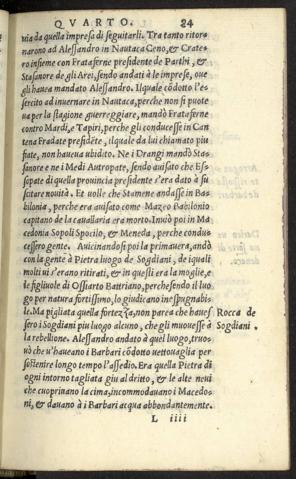 QVARTO. 84
nia da quella impresa di seguitarli. Tra tanto ritor⸗
narono ad Alessandro in Nautaca Ceno, & Crate⸗
ro insieme con Frataferne presidente de Parthi, &
Stasanore de gli Arei, sendo andati à le imprese, oue
gli haueа mandato Alessandro. Ilquale cōdotto l'es
sercito ad inuernare in Nautaca, perche non si puote
ua per la stagione guerreggiare, mandò Frataferne
contro Mardi, e Tapiri, perche gli conducesse in Can
tena Fradate presidēte, ilquale da lui chiamato piu
fiate, non haueua ubidito. Ne i Drangi mandò Sta⸗
sanore e ne i Medi Autropate, sendo auisato che Es⸗
sopate di quella prouincia presidente s'era dato à su
scitare nouità. Et uolle che Stamene andasse in Ba⸗
bilonia, perche era auisato come Mazeo Babilonio
capitano de la cauallaria era morto. Inuiò poi in Ma
cedonia Sopoli Spocilo, & Meneda, perche conduc
cessero gente. Auicinandosi poi la primauera, andò
con la gente à Pietra luogo de Sogdiani, de iquali
molti ui s'erano ritirati, & in quesli era la moglie, e
le figliuole di Ossiarto Battriano, perche sendo il luo
go per natura fortissimo, lo giudicano inespugnabi⸗
le. Ma pigliata quella fortezza, non parea che haues
sero i Sogdiani piu luogo alcuno, che gli muouesse à
la rebellione. Alessandro andato à quel luogo, truo⸗
uò che u'haueano i Barbari cōdotto uettouaglia per
sostenere longo tempo l'assedio. Era quella Pietra di
ogni intorno tagliata giu al dritto, & le alte neui
che cuoprinano la cima, incommodauano i Macedo⸗
ni, & dauano à i Barbari acqua abbondantemente.
Rocca de
Sogdiani.
L iiii